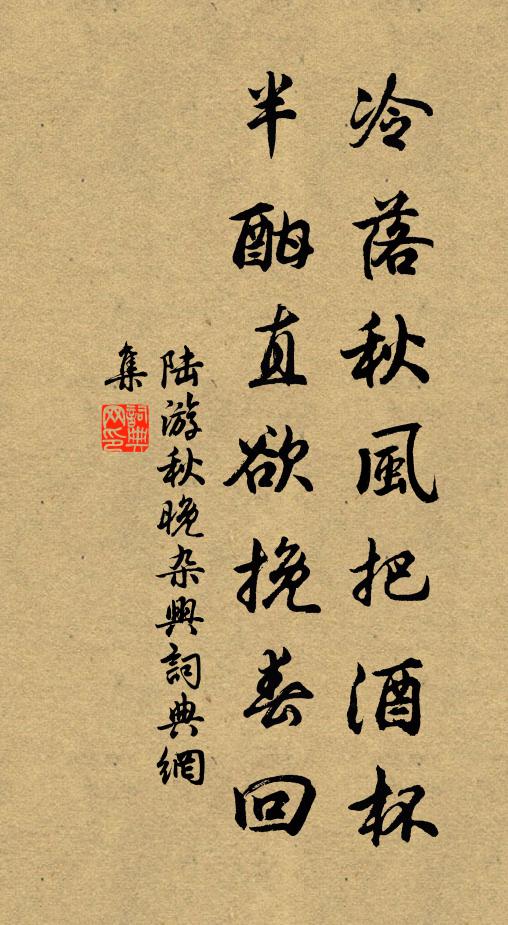 冷落秋風把酒杯
半酣直欲挽春回
陆游秋晚杂興詞典網
集
詞典
网印